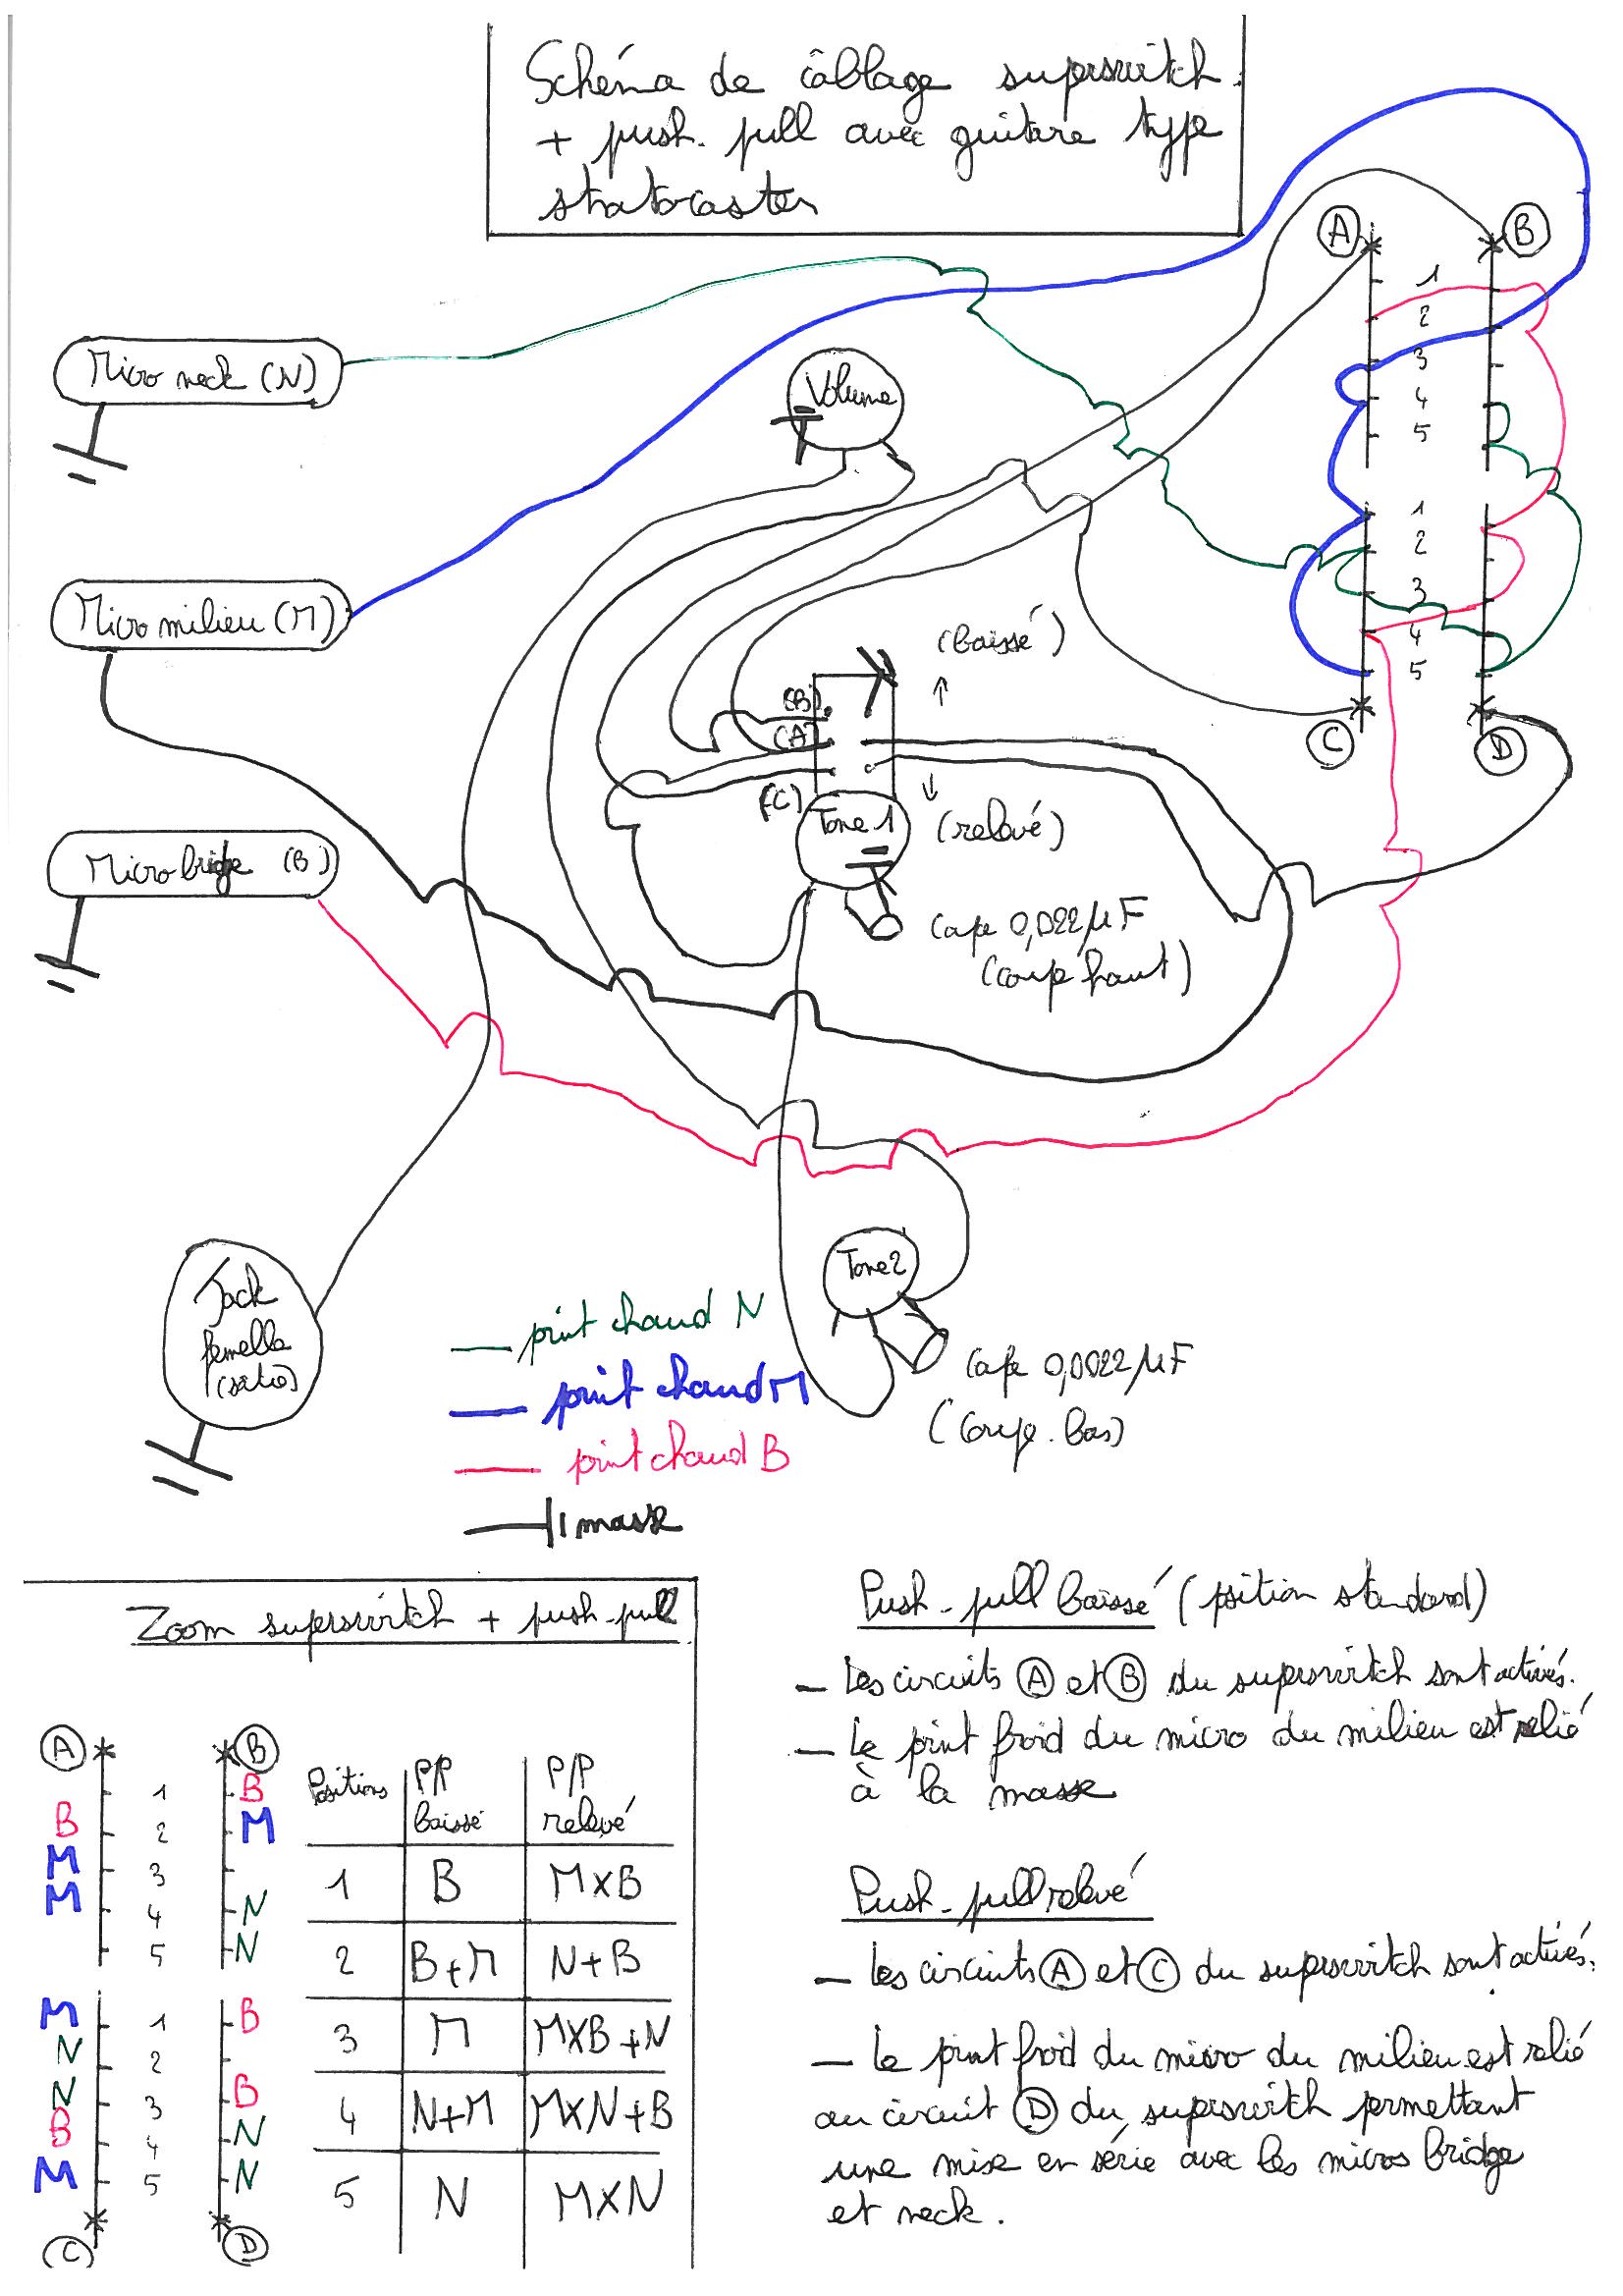 Schéma de câblage superswitch
+ push-pull avec guitare type
stratocaster
A
B
1
2
3
4
5
1
2
3
4
5
C
D
Micro neck (N)
Volume
Micro milieu (M)
(baissé)
(B)
(A)
(C)
Tone 1
(relevé)
Micro bridge (B)
Capa 0,022 µF
(coupe haut)
Jack
femelle
Tone 2
Capa 0,0022 µF
(Coupe-bas)
point chaud N
point chaud M
point chaud B
masse
Zoom superswitch + push-pull
A B
1 B
B 2 M
M 3
M 4 N
5 N
M 1 B
N 2
N 3 B
B 4 N
M 5 N
C D
Positions P/P baissé P/P relevé
1 B MxB
2 B+M N+B
3 M MxB+N
4 N+M MxN+B
5 N MxN
Push-pull baissé (position standard)
- Les circuits A et B du superswitch sont activés.
- Le point froid du micro du milieu est relié
à la masse
Push-pull relevé
- Les circuits A et C du superswitch sont activés.
- Le point froid du micro du milieu est relié
au circuit D du superswitch permettant
une mise en série avec les micros bridge
et neck.